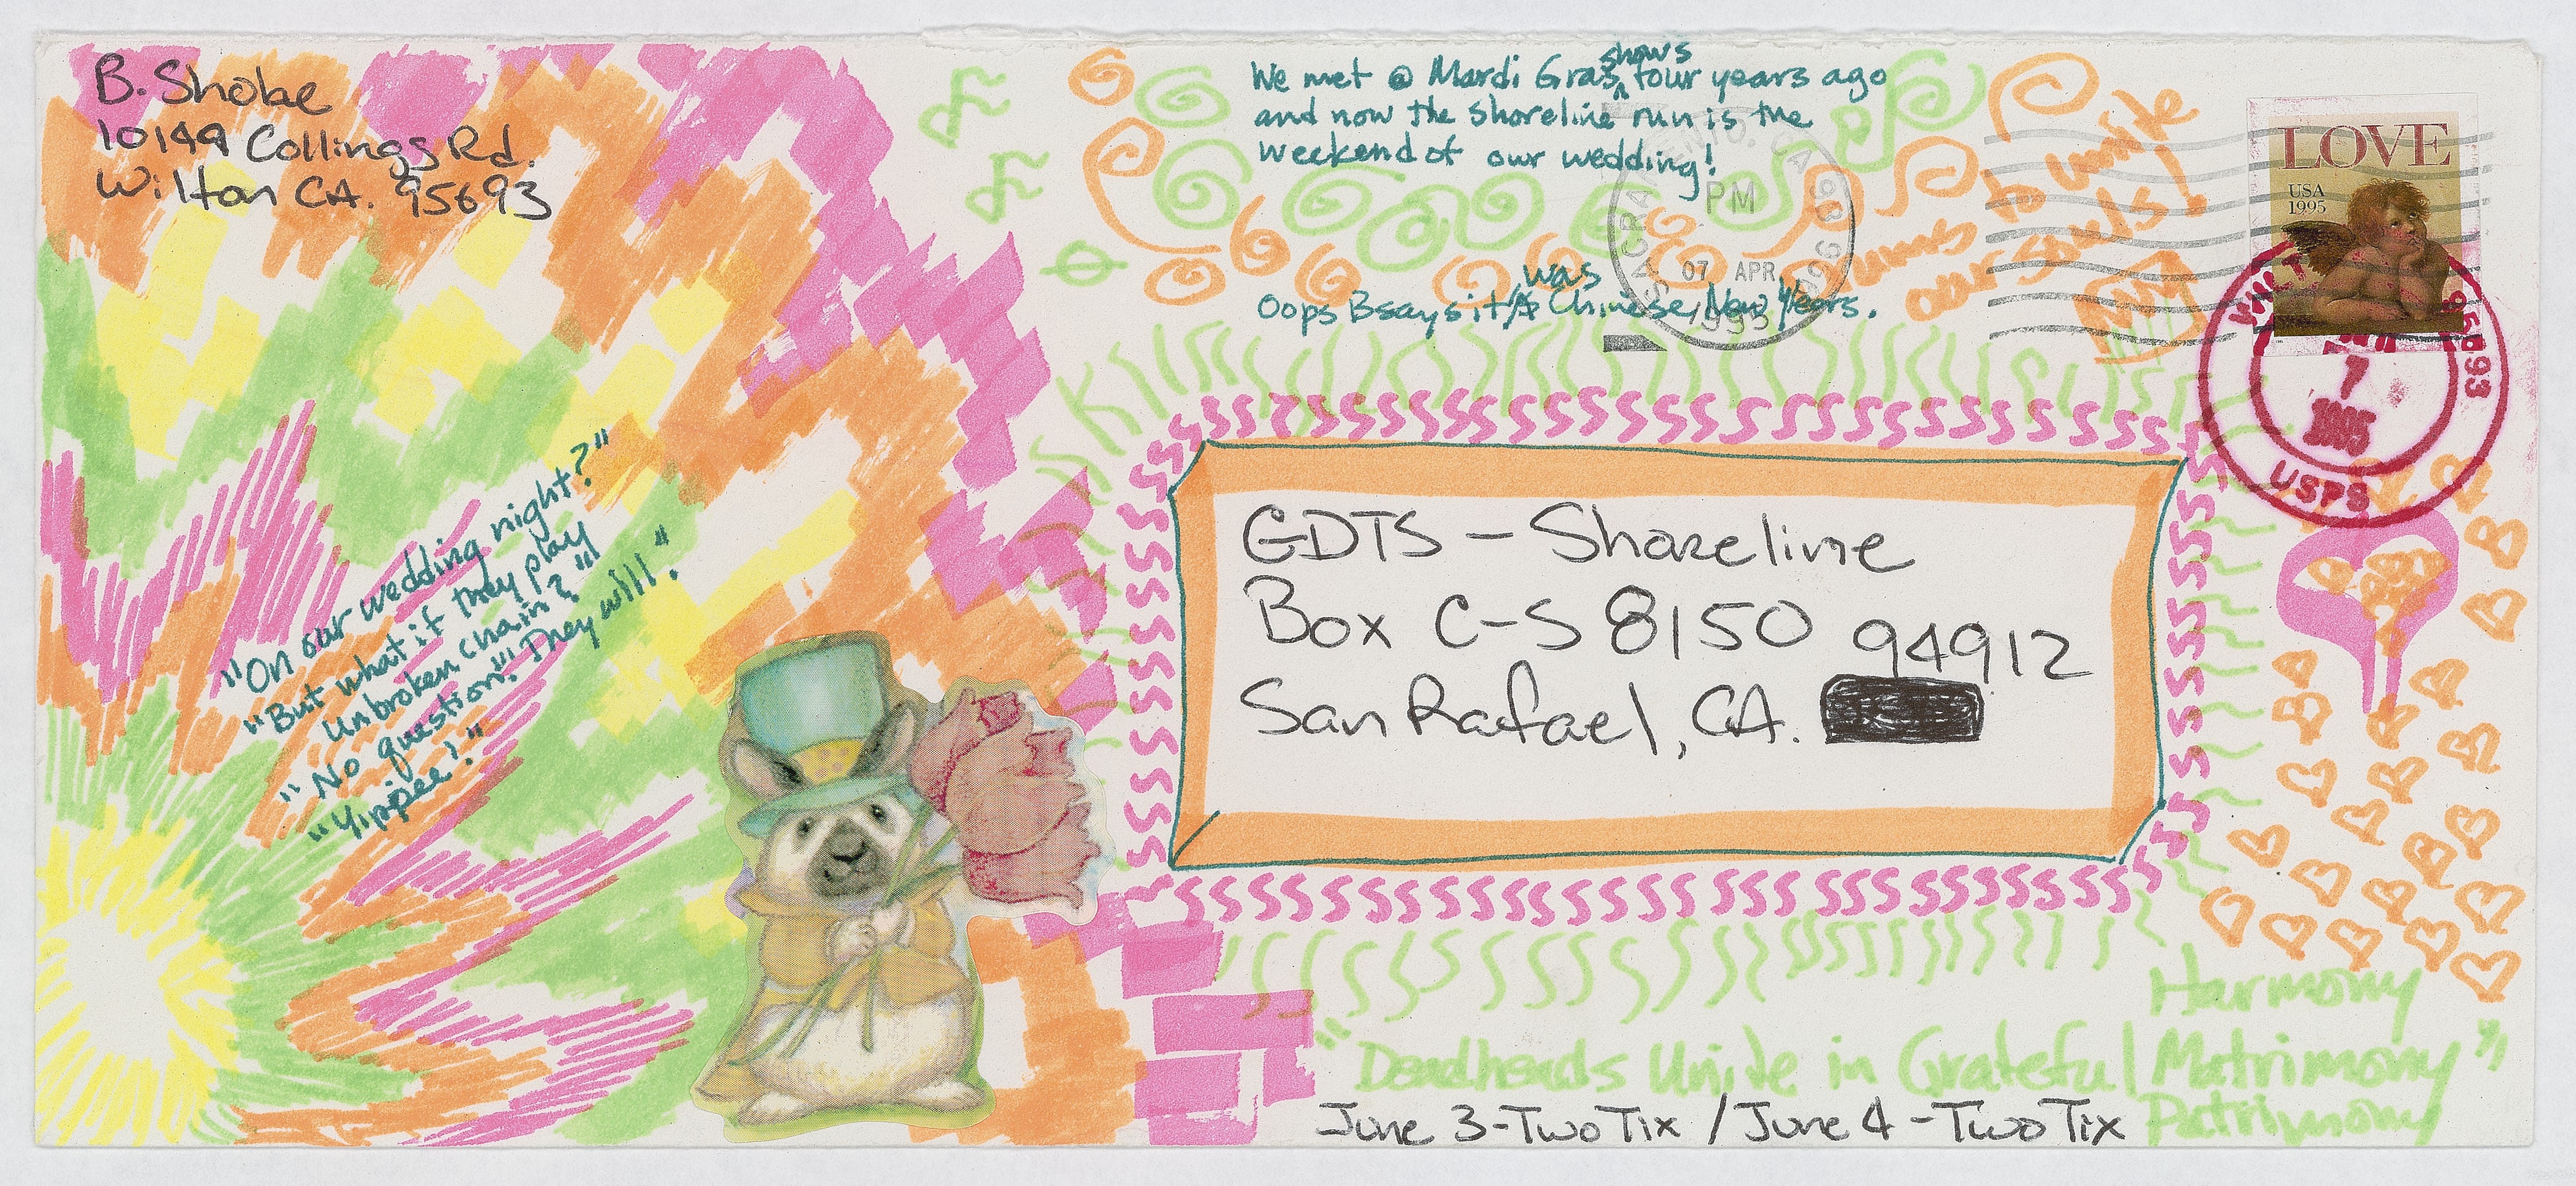 B. Shobe
10149 Collings Rd.
Wilton CA. 95693
We met @ Mardi Gras shows four years ago
and now the Shoreline run is the
weekend of our wedding!
Oops B says it was Chinese New Years.
to unite
our souls!
LOVE
USA
1995
SACRAMENTO, CA
PM
07 APR
1995
95693
7
1995
USPS
"On our wedding night?"
"But what if they play
Unbroken chain?"
"No question." They will."
"Yippee!"
GDTS - Shoreline
Box C-S 8150 94912
San Rafael, CA.
Harmony
"Deadheads Unite in Grateful Matrimony"
Patrimony
June 3-Two Tix / June 4-Two Tix